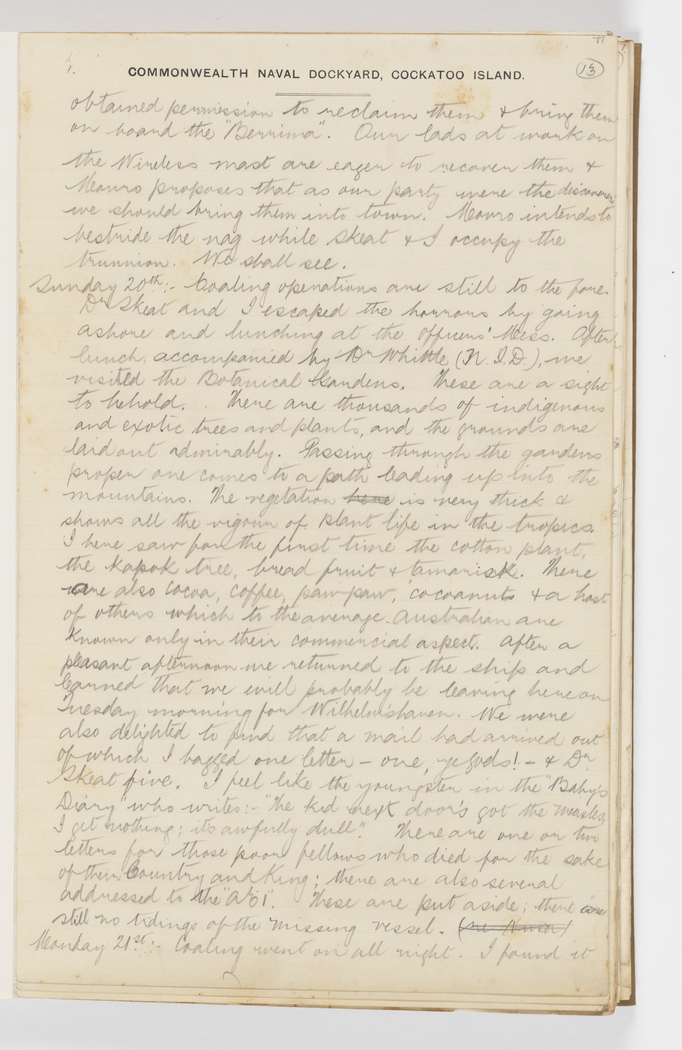 COMMONWEALTH NAVAL DOCKYARD, COCKATOO ISLAND.
13
obtained permission to reclaim them & bring them
on board the "Berrima". Our lads at work on
the Wireless mast are eager to recover them &
Monro proposes that as our party were the discoverers
we should bring them into town. Monro intends to
bestride the nag while Skeat & I occupy the
trunnion. We shall see.
Sunday 20th:- Coaling operations are still to the fore.
Dr Skeat and I escaped the horrors by going
ashore and lunching at the Officers' Mess. After
lunch, accompanied by Dr Whittle (N.I.D.), we
visited the Botanical Gardens. These are a sight
to behold. There are thousands of indigenous
and exotic trees and plants, and the grounds are
laid out admirably. Passing through the gardens
proper one comes to a path leading up into the
mountains. The vegetation here is very thick &
shows all the vigour of plant life in the tropics.
I here saw for the first time the cotton plant,
the kapok tree, bread fruit & tamarisk. There
are also cocoa, coffee, paw-paw, cocoanuts & a host
of others which to the average Australian are
known only in their commercial aspect. After a
pleasant afternoon we returned to the ship and
learned that we will probably be leaving here on
Tuesday morning for Wilhelmshaven. We were
also delighted to find that a mail had arrived out
of which I bagged one letter - one, ye gods! - & Dr
Skeat five. I feel like the youngster in the "Baby's
Diary" who writes:- "The kid next door's got the measles,
I get nothing; its awfully dull". There are one or two
letters for those poor fellows who died for the sake
of their Country and King; there are also several
addressed to the "AE1". These are put aside; there are
still no tidings of the missing vessel.
Monday 21st:- Coaling went on all night. I found it